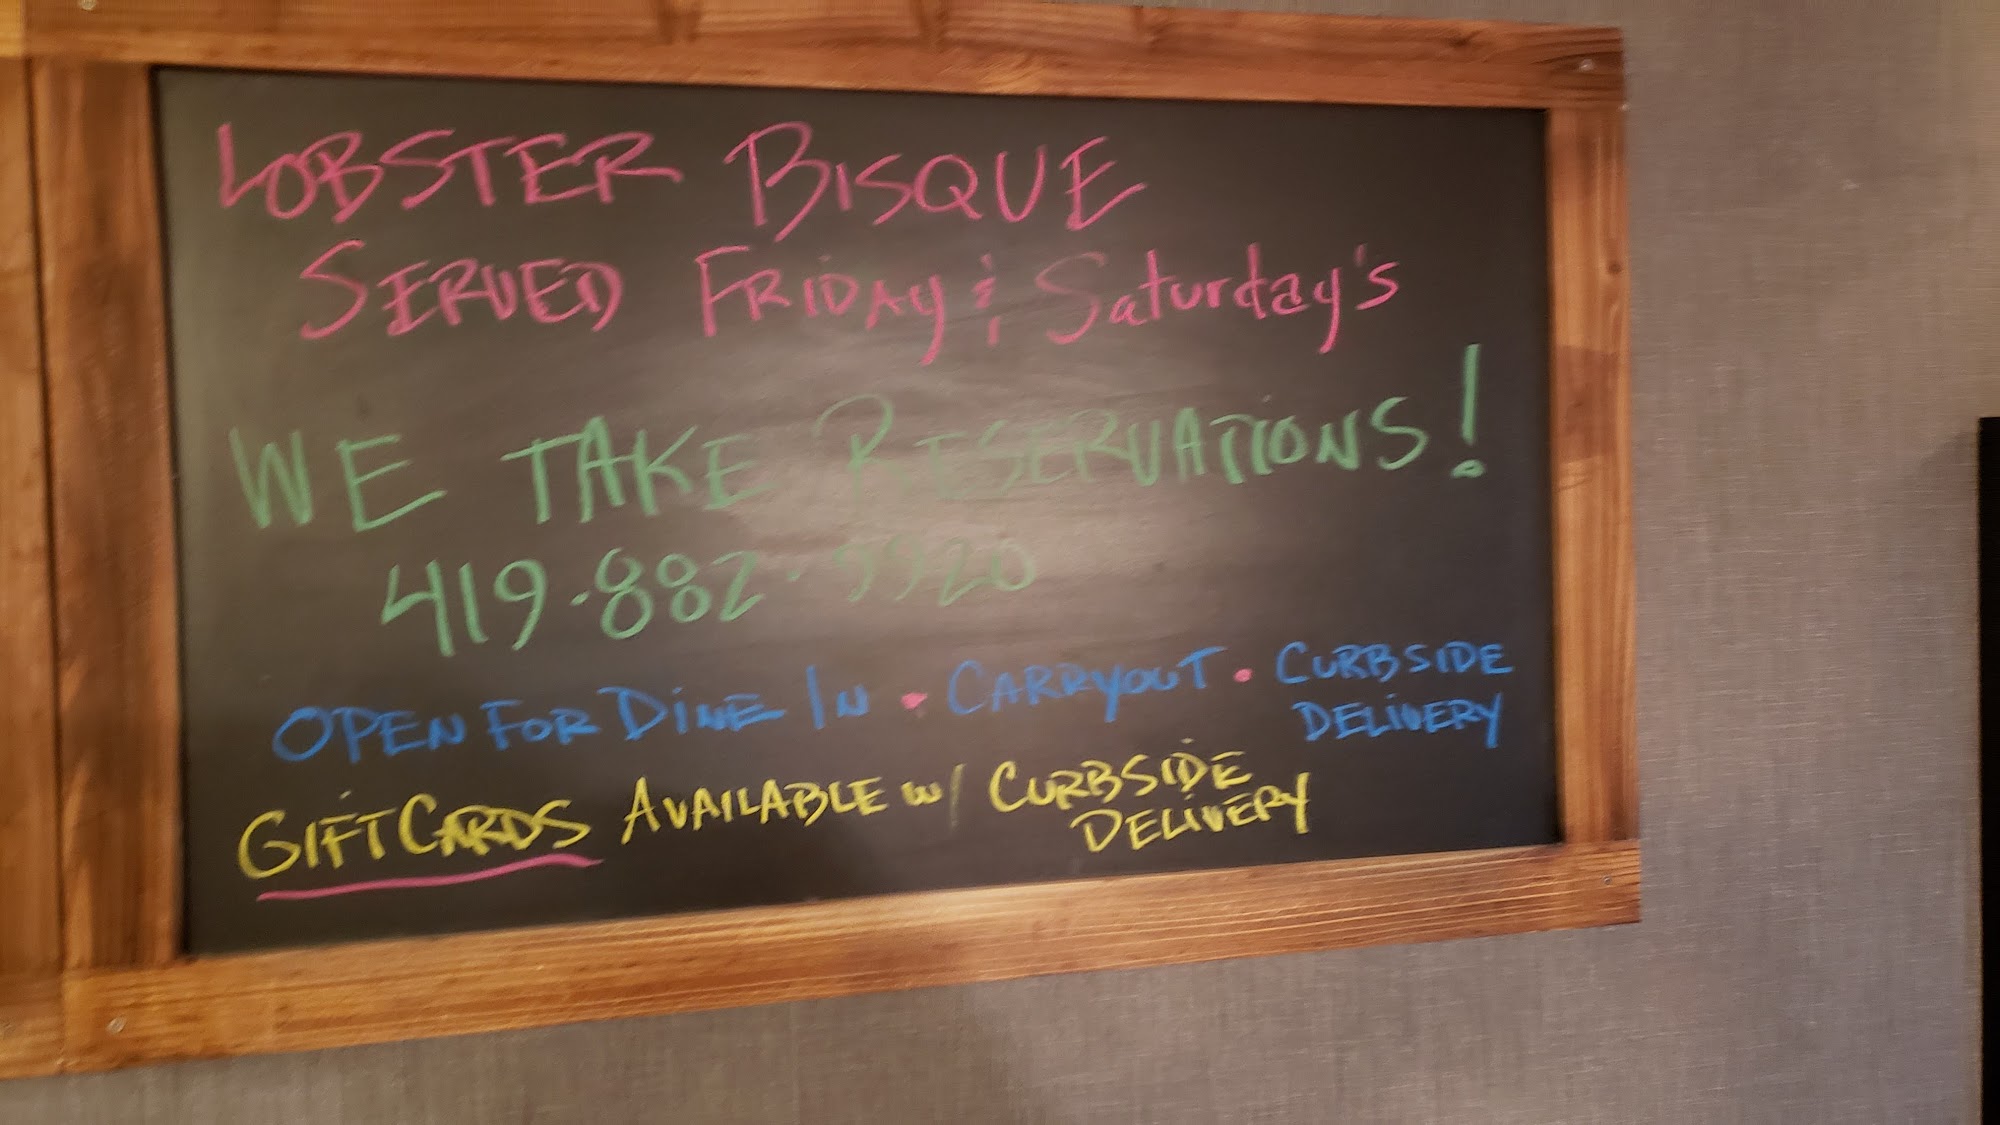 LOBSTER BISQUE
SERVED FRIDAY & Saturday's
WE TAKE RESERVATIONS!
419.882.9920
OPEN FOR DINE IN • CARRYOUT • CURBSIDE
DELIVERY
GIFT CARDS AVAILABLE w/ CURBSIDE
DELIVERY